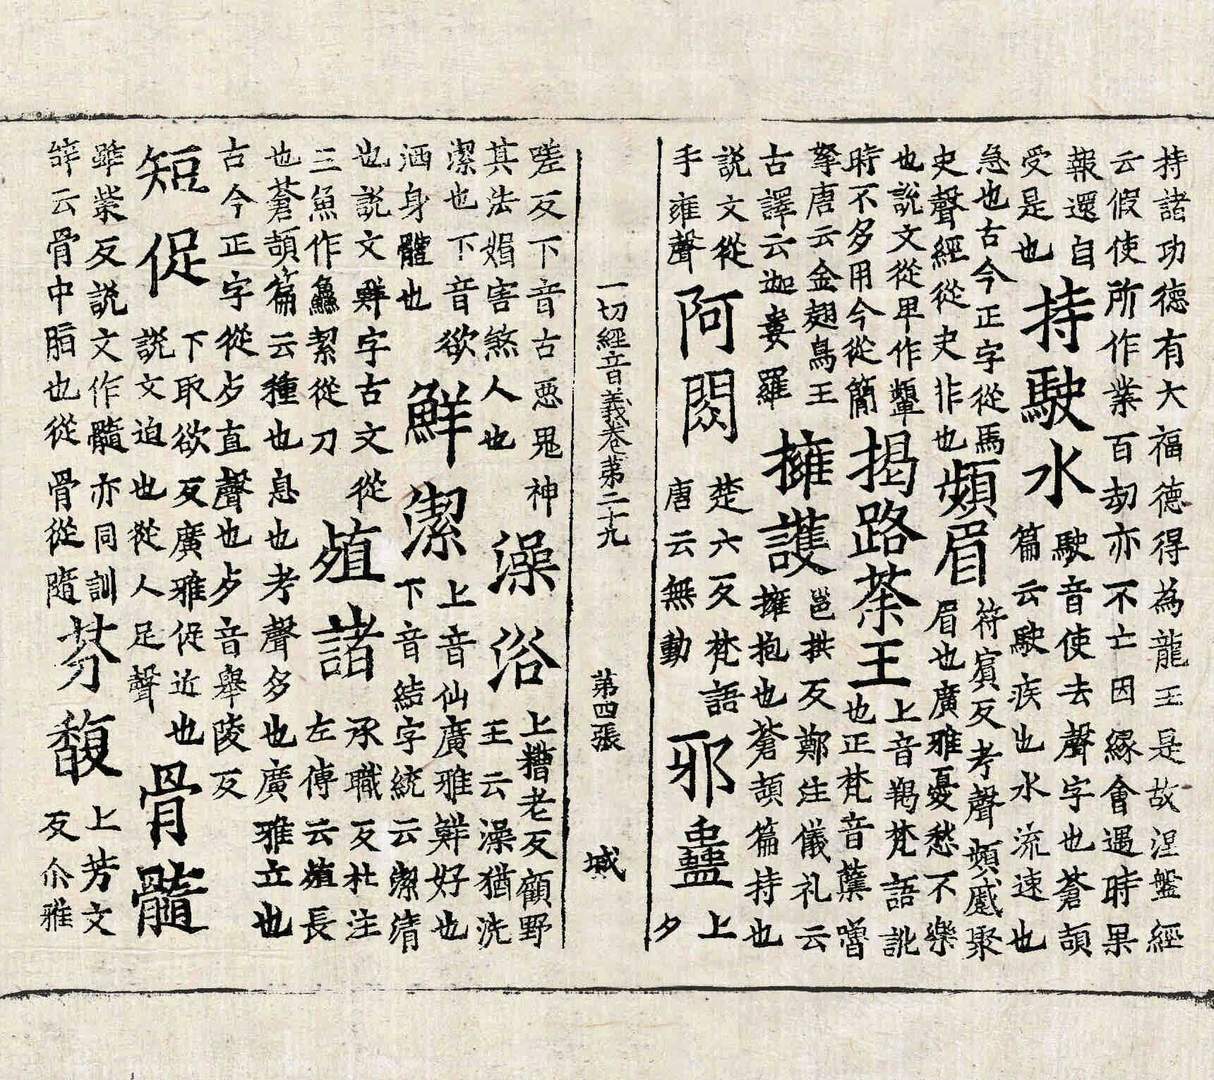 持諸功德有大福德得為龍王是故涅盤經
云假使所作業百劫亦不亡因緣會遇時果
報還自
受是也
持駛水
駛音使去聲字也蒼頡
篇云駛疾也水流速也
急也古今正字從馬
史聲經從史非也
頻眉
符賓反考聲頻蹙聚
眉也廣雅憂愁不樂
也說文從卑作顰
時不多用今從簡
揭路荼王
上音羯梵語訛
也正梵音蘖嚕
拏唐云金翅鳥王
古譯云迦婁羅
擁護
邕拱反鄭注儀礼云
擁抱也蒼頡篇持也
說文從
手雍聲
阿閦
楚六反梵語
唐云無動
邪蠱
上
夕
一切經音義卷苐二十九 苐四張 城
嗟反下音古惡鬼神
其法媚害煞人也
澡浴
上糟老反顧野
王云澡猶洗
潔也下音欲
洒身體也
鮮潔
上音仙廣雅鮮好也
下音結字統云潔清
也說文鮮字古文從
三魚作鱻絜從刀
殖諸
承職反杜注
左傳云殖長
也蒼頡篇云種也息也考聲多也廣雅立也
古今正字從歺直聲也歺音舉陵反
短促
下取欲反廣雅促近也
說文迫也從人足聲
骨髓
雖紫反說文作髓亦同訓
辥云骨中脂也從骨從隨
芬馥
上芳文
反尒雅